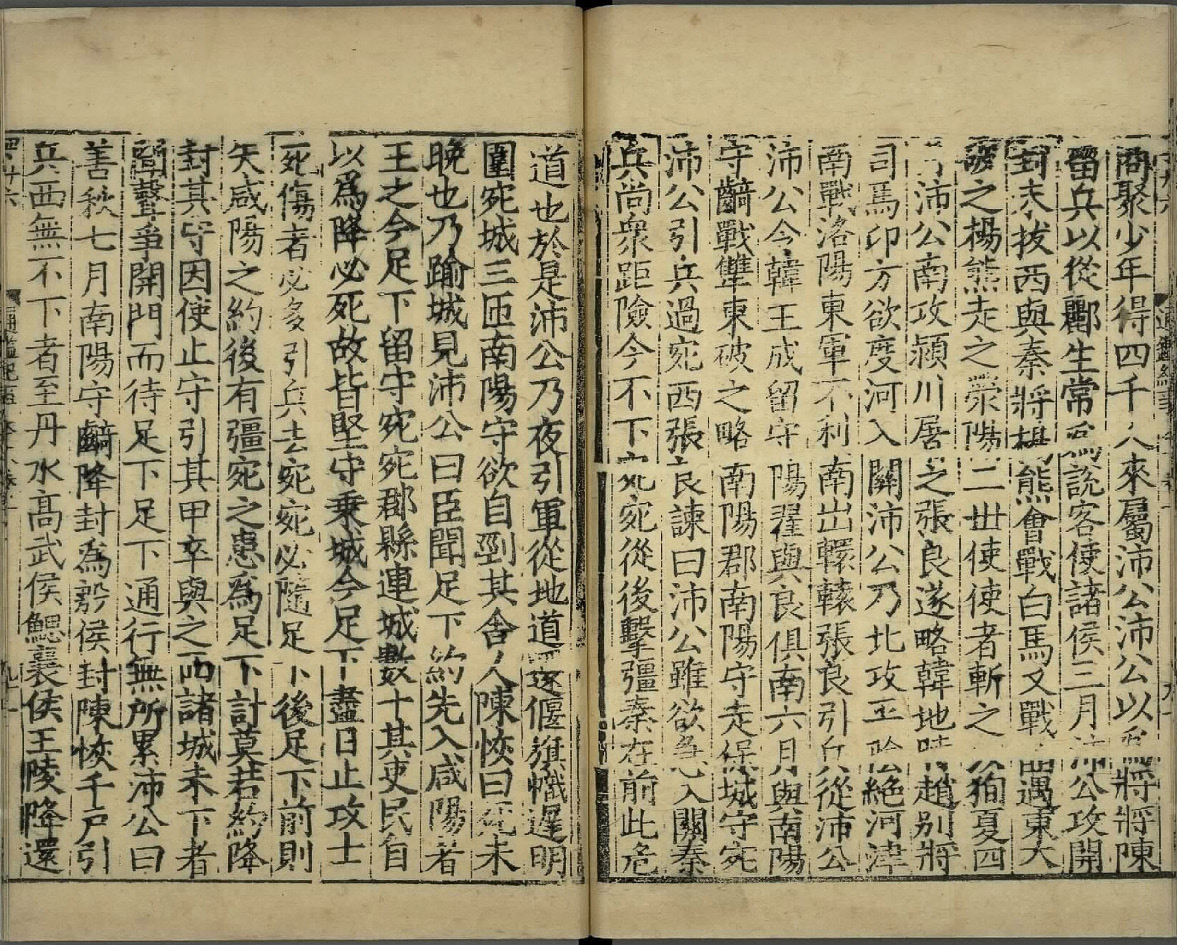 商聚少年得四千人來屬沛公沛公以為將將陳
留兵以從酈生常為說客使諸侯三月沛公攻開
封未拔西與秦將楊熊會戰白馬又戰曲遇東大
破之楊熊走之滎陽二世使使者斬之以狥夏四
月沛公南攻潁川屠之張良遂略韓地時趙別將
司馬卬方欲度河入關沛公乃北攻平陰絕河津
南戰洛陽東軍不利南出轘轅張良引兵從沛公
沛公令韓王成留守陽翟與良俱南六月與南陽
守齮戰犨東破之略南陽郡南陽守走保城守宛
沛公引兵過宛西張良諫曰沛公雖欲急入關秦
兵尚衆距險今不下宛宛從後擊彊秦在前此危
道也於是沛公乃夜引軍從地道還偃旗幟遲明
圍宛城三匝南陽守欲自剄其舍人陳恢曰死未
晚也乃踰城見沛公曰臣聞足下約先入咸陽者
王之今足下留守宛宛郡縣連城數十其吏民自
以爲降必死故皆堅守乗城今足下盡日止攻士
死傷者必多引兵去宛宛必隨足下後足下前則
失咸陽之約後有彊宛之患爲足下計莫若約降
封其守因使止守引其甲卒與之西諸城未下者
聞聲爭開門而待足下足下通行無所累沛公曰
善秋七月南陽守齮降封爲殷侯封陳恢千戶引
兵西無不下者至丹水髙武侯鰓襄侯王陵降還